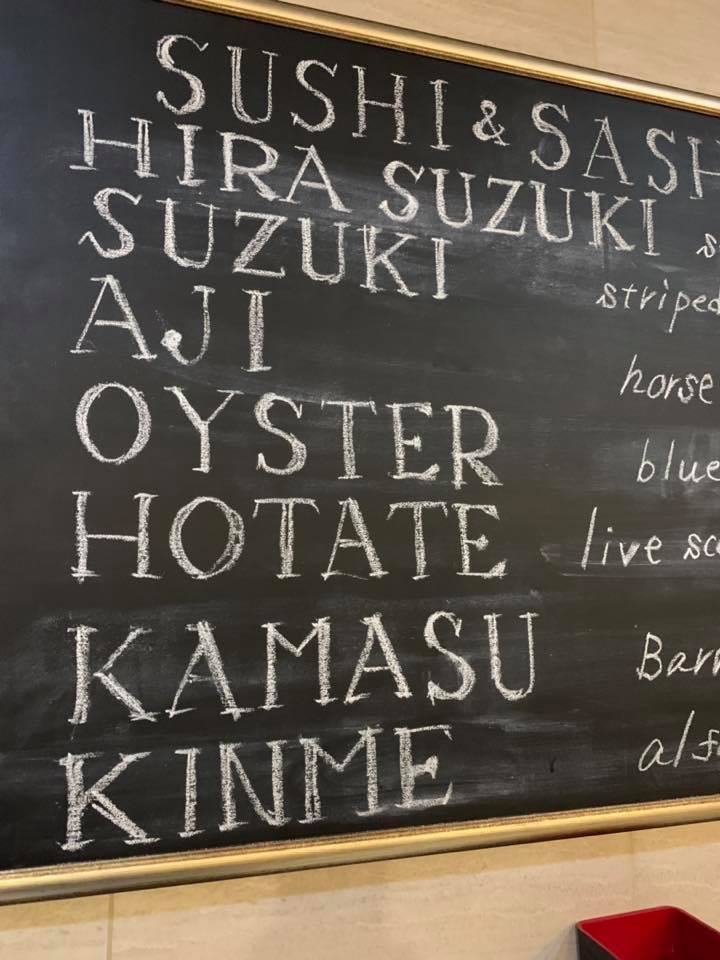 SUSHI & SASH
HIRA SUZUKI s
SUZUKI striped
AJI horse
OYSTER blue
HOTATE live sc
KAMASU Barr
KINME alf